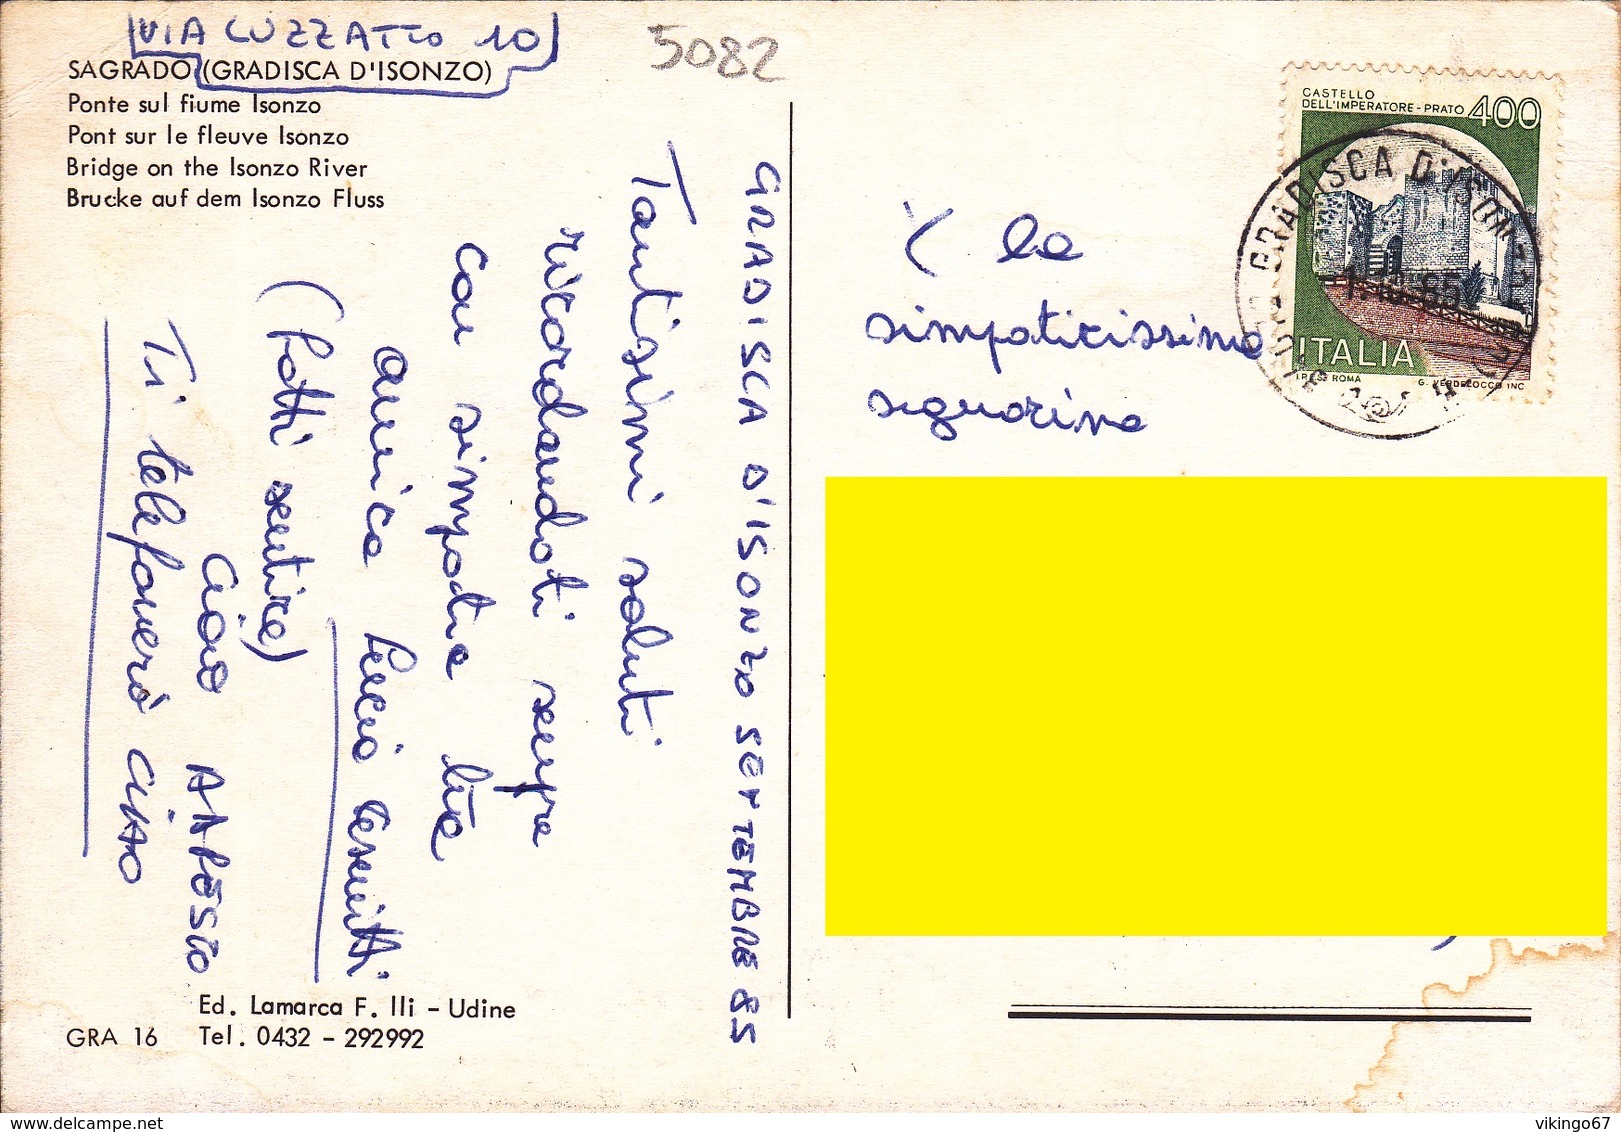 VIA LUZZATTO 10
5082
SAGRADO (GRADISCA D'ISONZO)
Ponte sul fiume Isonzo
Pont sur le fleuve Isonzo
Bridge on the Isonzo River
Brucke auf dem Isonzo Fluss
GRADISCA D'ISONZO SETTEMBRE 85
Tantissimi saluti
ricordandoti sempre
con simpatia tua
amica
(fatti sentire)
ciao A PRESTO
Ti telefonerò CIAO
Ed. Lamarca F. lli - Udine
GRA 16 Tel. 0432 - 292992
CASTELLO
DELL'IMPERATORE - PRATO 400
ITALIA
I.P.S. ROMA G. VERDELOCCO INC
GRADISCA D'ISONZO
1.10.85
la
simpaticissima
signorina
delcampe.net
vikingo67